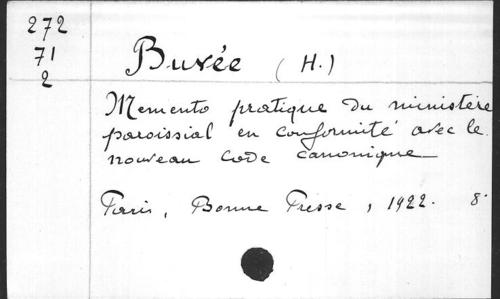 272
71
2
Buvée (H.)
Memento pratique du ministère
paroissial en conformité avec le
nouveau code canonique
Paris, Bonne Presse, 1922. 8°